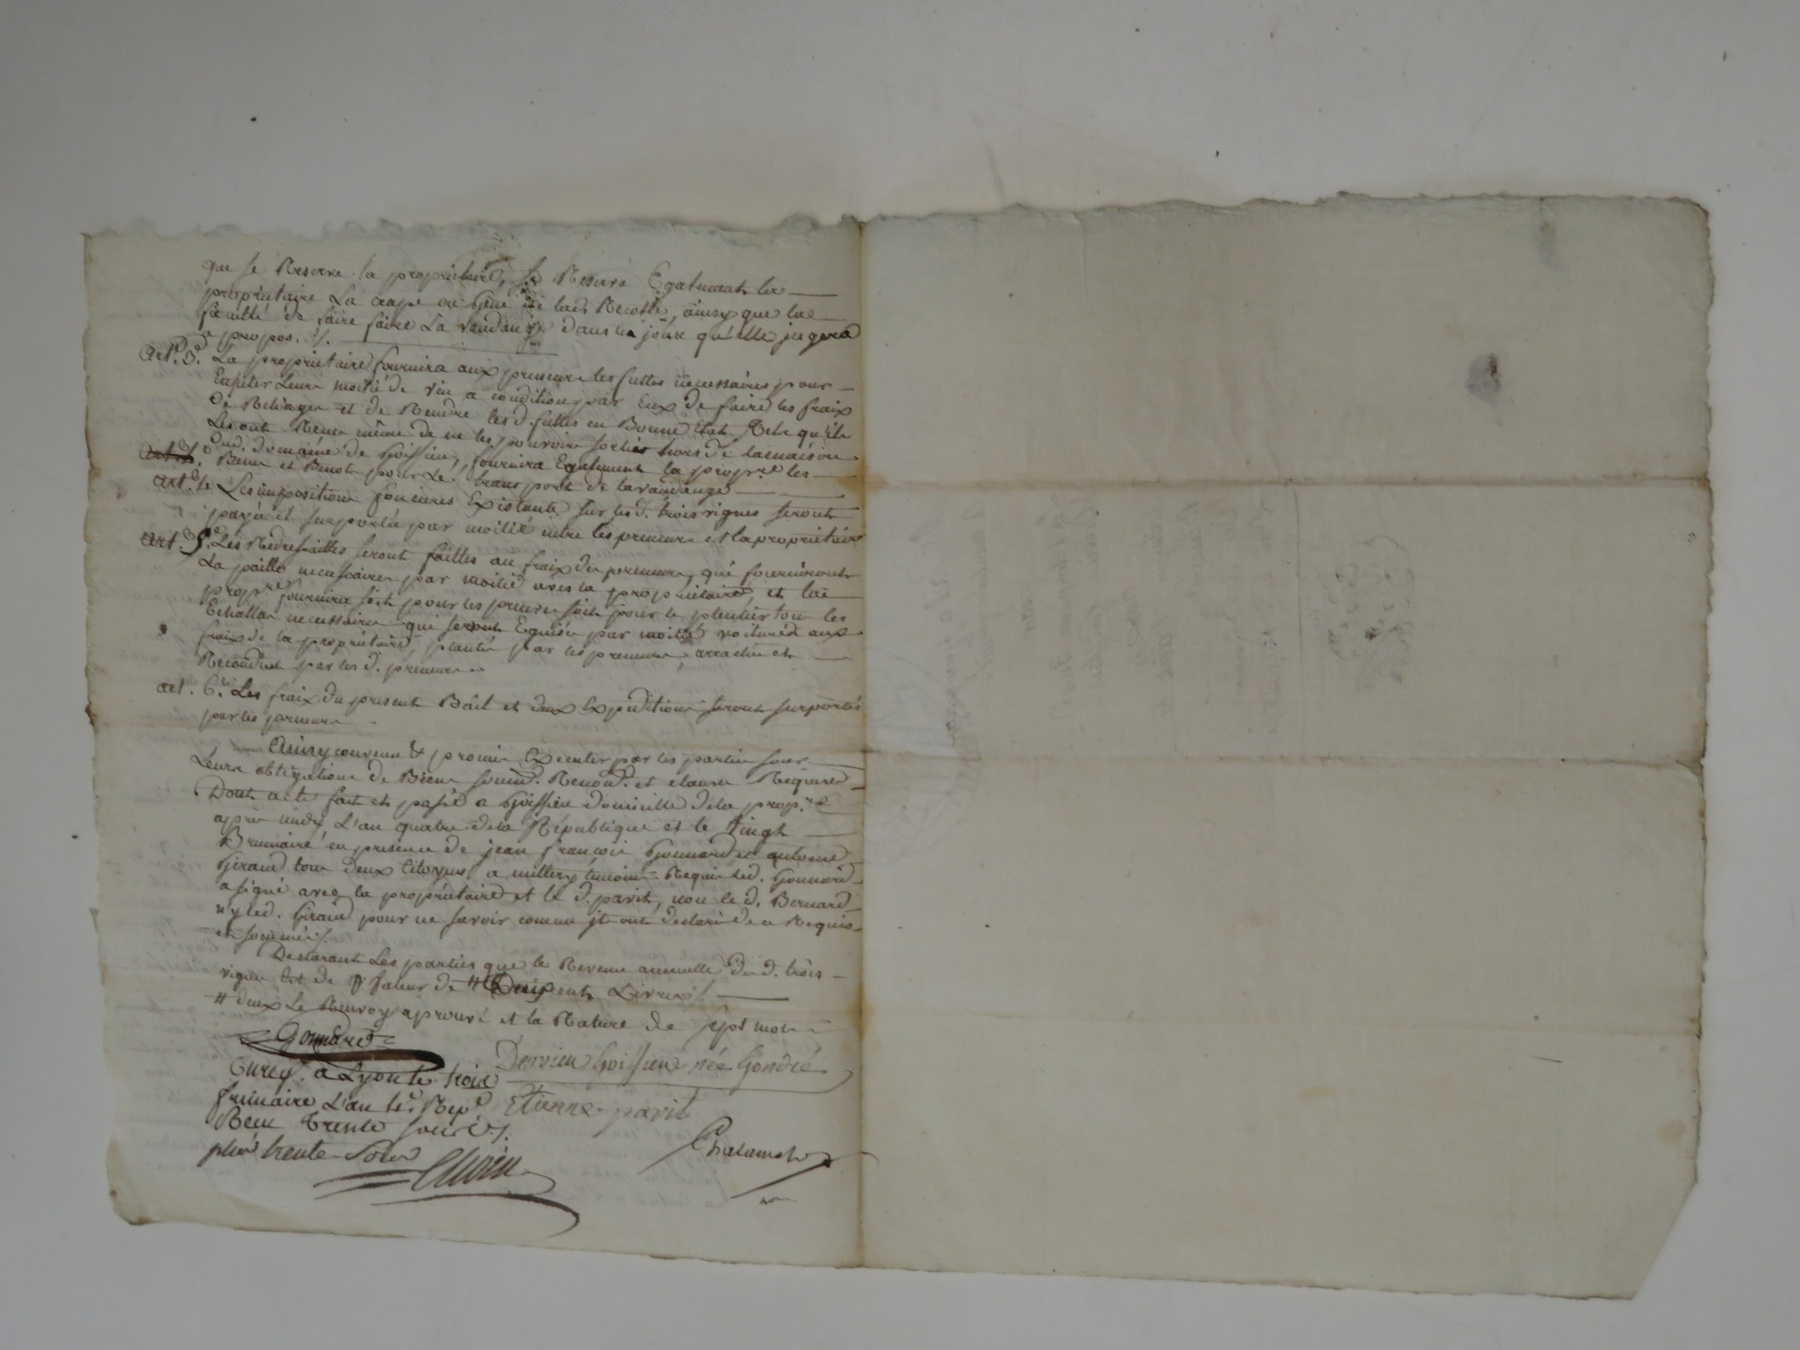 que se Reserve la propriétaire, se Reserve Egalement la
propriétaire La crape ou gene de lad. Recolte, ainsy que la
faculté de faire faire La vandange dans le jour qu'elle jugera
a propos ./.
Art. 3.e La propriétaire fournira aux preneurs les futtes necessaires pour
Leurs moitié de vin a condition par Eux de faire les fraix
de Reliages et de Rendre les d. futtes en Bonne Etat, Tels qu'ils
Les ont Recus même de ne les pouvoir sortir hors de la maison
dud. domaine de Goiffieu, fournira Egalement la propr.re les
Benes et pour Le transport de la vandange
Art. 4e Les impositions foncieres Existante sur les d. trois vignes seront
payé et supportée par moitié entre les preneurs et la propriétaire
Art. 5.e Les seront faittes au fraix des preneurs, qui fourniront
La paille necessaires par moitié avec la propriétaire, et la
propr.re fournira soit pour les soit pour le plantier tous les
Echallas necessaires qui seront Eguisés par moitié voiturés aux
fraix de la propriétaire, plantés par les preneurs, arrachés et
par les d. preneurs
art. 6.e Les fraix du present Bail et deux Expeditions seront supportés
par les preneurs
Ainsy convenu & promis Executer par les parties sous
Leurs obligations de Biens soumd. Renond. et clauses Requises
Dont acte fait et passé a Goiffieu domicille de la prop.re
après midy L'an quatre de la République et le Vingt
Brumaire en presence de jean françois Gonnard et
Giraud tous deux Citoyens a millery temoins Requis led. Gonnard
a signé avec la propriétaire et le d. parit, non le d. Bernard
ny led. Giraud pour ne savoir comme ils ont déclaré de ce Requis
et sommés ./.
Declarant Les parties que le Revenu annuelle des d. trois
vignes est de Valeur de # cents Livres ./.
# deux Le Renvoy aprouvé et la Rature de sept mots
Gonnard
Enreg. a Lyon le trois
frimaire L'an 4e. Rep.e
Recu Trente sous ./.
plus trente Sous
Dervieu Goiffieu née Gondré
Etienne parit
Chalamel